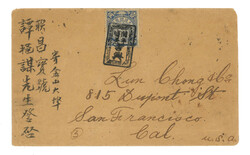 寄金山大埠
昌寶號
譚揚謀先生啓
Lun Chong & Co
815 Dupont St
San Francisco
Cal.
U.S.A